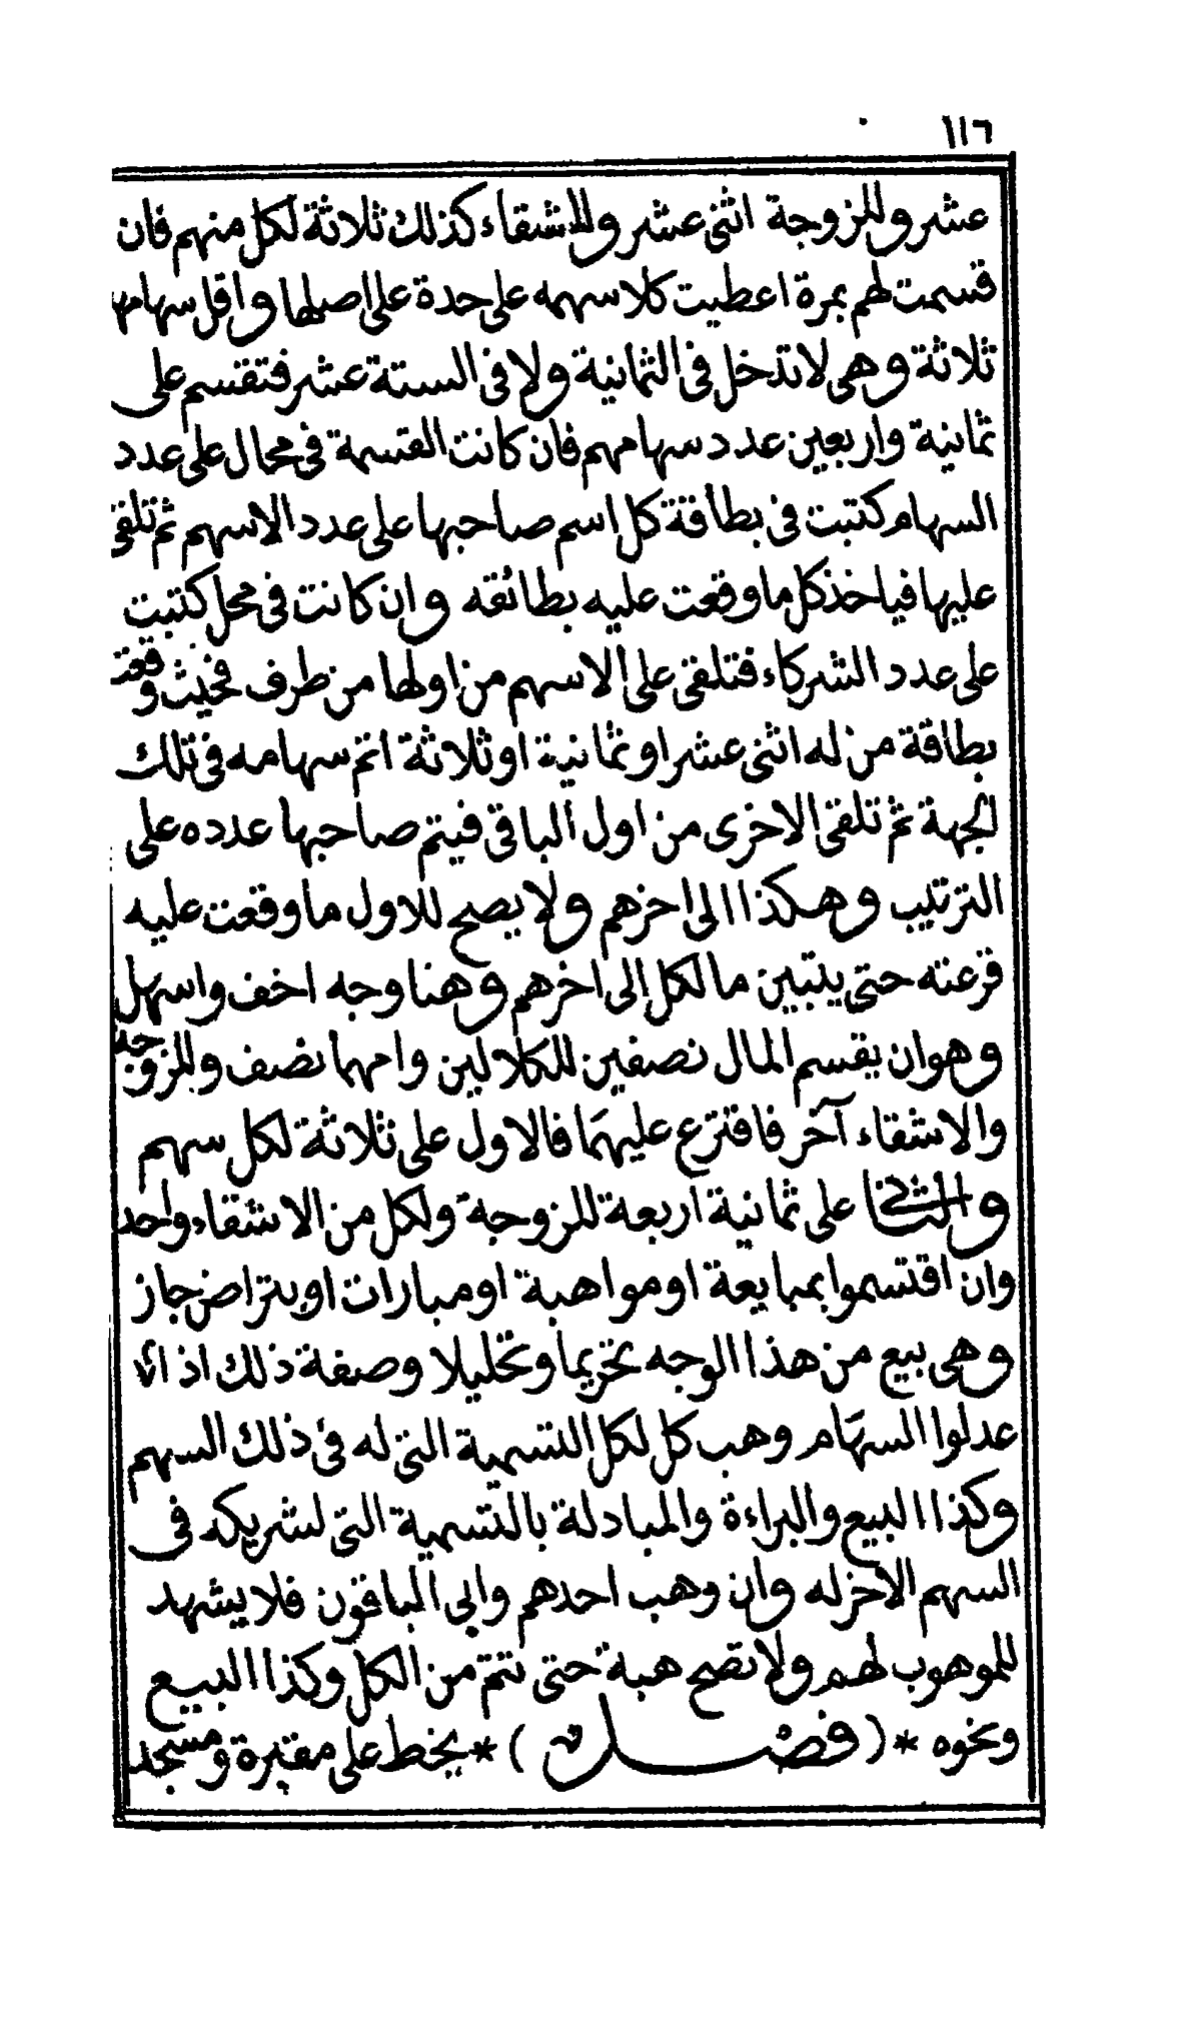 ١١٦
عشر وللزوجة اثنى عشر وللاشقاء كذلك ثلاثة لكل منهم فان
قسمت لهم بمرة اعطيت كلا سهمه على حدة على اصلها واقل سهامها
ثلاثة وهى لا تدخل فى الثمانية ولا فى الستة عشر فتقسم على
ثمانية واربعين عدد سهامهم فان كانت القسمة فى محال على عدد
السهام كتبت فى بطاقة كل اسم صاحبها على عدد الاسهم ثم تلقى
عليها فياخذ كل ما وقعت عليه بطائقه وان كانت فى محل كتبت
على عدد الشركاء فتلقى على الاسهم من اولها من طرف فحيث وقعت
بطاقة من له اثنى عشر او ثمانية او ثلاثة اتم سهامه فى تلك
الجهة ثم تلقى الاخرى من اول الباقى فيتم صاحبها عدده على
الترتيب وهكذا الى اخرهم ولا يصح للاول ما وقعت عليه
قرعته حتى يتبين ما لكل إلى اخرهم وهنا وجه اخف واسهل
وهو ان يقسم المال نصفين للكلالين وامهما نصف وللزوجة
والاشقاء آخر فاقترع عليهما فالاول على ثلاثة لكل سهم
على ثمانية اربعة للزوجة ولكل من الاشقاء واحد
وان اقتسموا بمبايعة او مواهبة او مبارات او بتراض جاز
وهى بيع من هذا الوجه تحريما وتحليلا وصفة ذلك اذا
عدلوا السهام وهب كل لكل التسمية التى له فى ذلك السهم
وكذا البيع والبراءة والمبادلة بالتسمية التى لشريكه فى
السهم الاخر له وان وهب احدهم وابى الباقون فلا يشهد
للموهوب لهم ولا تصح هبة حتى تتم من الكل وكذا البيع
ونحوه * ( فصل ) * يخط على مقبرة ومسجد